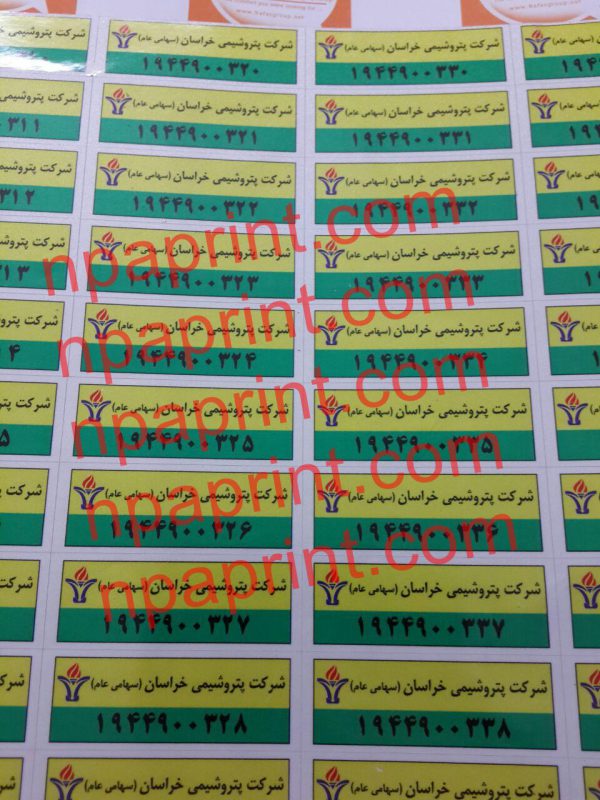 شرکت پتروشیمی خراسان (سهامی عام)
۱۹۴۴۹۰۰۳۳۰
شرکت پتروشیمی خراسان (سهامی عام)
۱۹۴۴۹۰۰۳۲۰
شرکت پتروشیمی
شرکت پتروشیمی خراسان (سهامی عام)
۱۹۴۴۹۰۰۳۳۱
شرکت پتروشیمی خراسان (سهامی عام)
۱۹۴۴۹۰۰۳۲۱
شرکت پتروشیمی
۳۱۱
شرکت پتروشیمی خراسان (سهامی عام)
۱۹۴۴۹۰۰۳۳۲
شرکت پتروشیمی خراسان (سهامی عام)
۱۹۴۴۹۰۰۳۲۲
شرکت پتروشیمی
۳۱۲
شرکت پتروشیمی خراسان (سهامی عام)
۱۹۴۴۹۰۰۳۳۳
شرکت پتروشیمی خراسان (سهامی عام)
۱۹۴۴۹۰۰۳۲۳
۳۱۳
شرکت پتروشیمی خراسان (سهامی عام)
۱۹۴۴۹۰۰۳۳۴
شرکت پتروشیمی خراسان (سهامی عام)
۱۹۴۴۹۰۰۳۲۴
شرکت پتروشیمی خراسان (سهامی عام)
۱۹۴۴۹۰۰۳۳۵
شرکت پتروشیمی خراسان (سهامی عام)
۱۹۴۴۹۰۰۳۲۵
شرکت پتروشیمی خراسان (سهامی عام)
۱۹۴۴۹۰۰۳۳۶
شرکت پتروشیمی خراسان (سهامی عام)
۱۹۴۴۹۰۰۳۲۶
شرکت پتروشیمی خراسان (سهامی عام)
۱۹۴۴۹۰۰۳۳۷
شرکت پتروشیمی خراسان (سهامی عام)
۱۹۴۴۹۰۰۳۲۷
شرکت پتروشیمی خراسان (سهامی عام)
۱۹۴۴۹۰۰۳۳۸
شرکت پتروشیمی خراسان (سهامی عام)
۱۹۴۴۹۰۰۳۲۸
شرکت پتروشیمی خراسان (سهامی عام)
شرکت پتروشیمی خراسان (سهامی عام)
npaprint.com
npaprint.com
npaprint.com
npaprint.com
npaprint.com